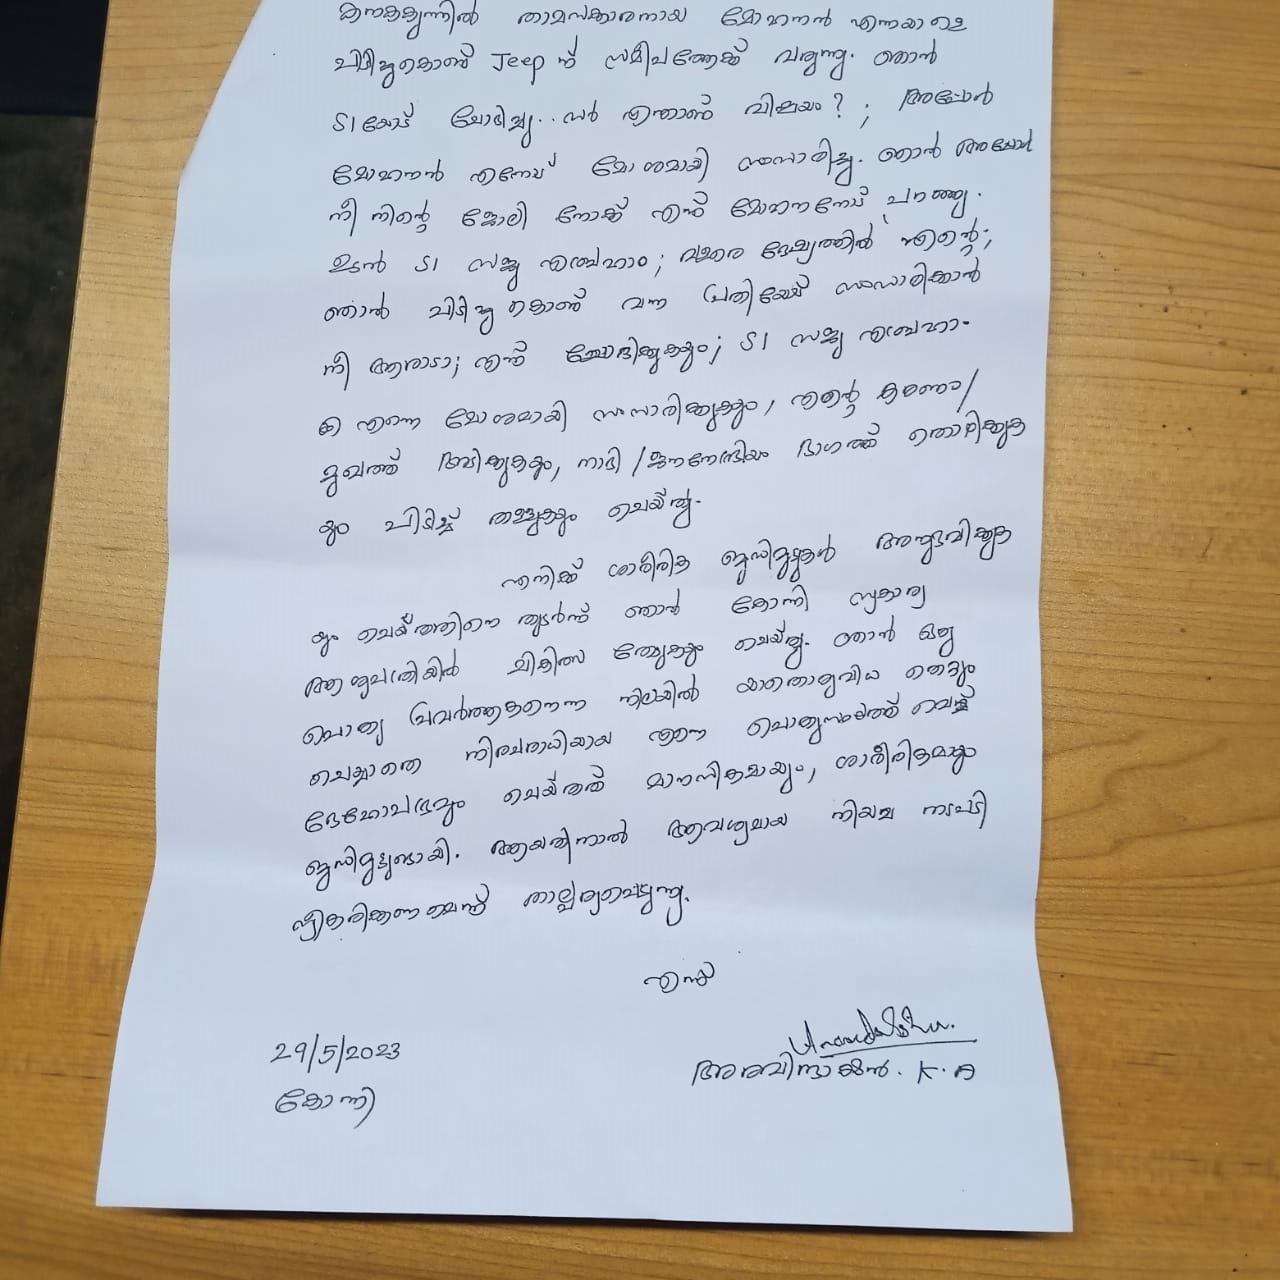 കനകകുന്നിൽ താമസക്കാരനായ മോഹനൻ എന്നയാളെ
പിടിച്ചുകൊണ്ട് Jeep ന് സമീപത്തേക്ക് വരുന്നു. ഞാൻ
SI യോട് ചോദിച്ചു.. സർ എന്താണ് വിഷയം? ; അപ്പോൾ
മോഹനൻ എന്നോട് മോശമായി സംസാരിച്ചു. ഞാൻ അപ്പോൾ
നീ നിന്റെ ജോലി നോക്ക് എന്ന് മോഹനനോട് പറഞ്ഞു.
ഉടൻ SI സജു എബ്രഹാം ; വളരെ ദേഷ്യത്തിൽ എന്റെ ;
ഞാൻ പിടിച്ചു കൊണ്ട് വന്ന പ്രതിയോട് സംസാരിക്കാൻ
നീ ആരാടാ ; എന്ന് ചോദിക്കുകയും ; SI സജു എബ്രഹാം
എന്നെ മോശമായി സംസാരിക്കുകയും, എന്റെ കരണം/
മുഖത്ത് അടിക്കുകയും, നാഭി / ജനനേന്ദ്രിയം ഭാഗത്ത് തൊഴിക്കുക
യും പിടിച്ച് തള്ളുകയും ചെയ്തു.
എനിക്ക് ശാരീരിക ബുദ്ധിമുട്ടുകൾ അനുഭവിക്കുക
യും ചെയ്തതിനെ തുടർന്ന് ഞാൻ കോന്നി സ്വകാര്യ
ആശുപത്രിയിൽ ചികിത്സ തേടുകയും ചെയ്തു. ഞാൻ ഒരു
പൊതു പ്രവർത്തകനെന്ന നിലയിൽ യാതൊരുവിധ തെറ്റും
ചെയ്യാതെ നിരപരാധിയായ എന്നെ പൊതുസ്ഥലത്ത് വെച്ച്
ദേഹോപദ്രവും ചെയ്തത് മാനസികമായും, ശാരീരികമായും
ബുദ്ധിമുട്ടുണ്ടായി. ആയതിനാൽ ആവശ്യമായ നിയമ നടപടി
സ്വീകരിക്കണമെന്ന് താല്പര്യപ്പെടുന്നു.
എന്ന്
29/5/2023
കോന്നി
അരവിന്ദാക്ഷൻ. K. A